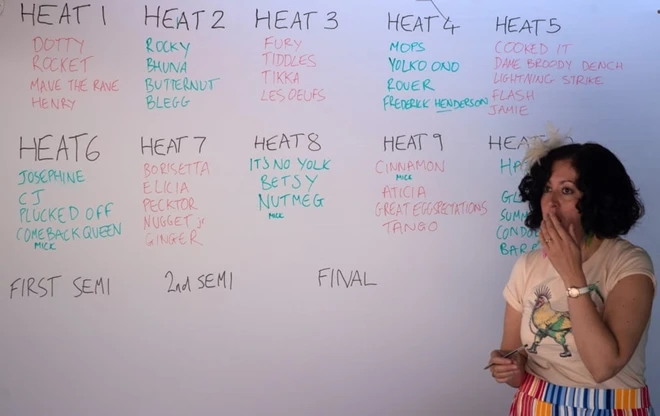 HEAT 1
DOTTY
ROCKET
MAVE THE RAVE
HENRY
HEAT 2
ROCKY
BHUNA
BUTTERNUT
BLEGG
HEAT 3
FURY
TIDDLES
TIKKA
LES OEUFS
HEAT 4
MOPS
YOLKO ONO
ROVER
FREDERICK HENDERSON
HEAT 5
COOKED IT
DAME BROODY DENCH
LIGHTNING STRIKE
FLASH
JAMIE
HEAT 6
JOSEPHINE
CJ
PLUCKED OFF
COMEBACK QUEEN
MICK
HEAT 7
BORISETTA
ELICIA
PECKTOR
NUGGET jr
GINGER
HEAT 8
IT'S NO YOLK
BETSY
NUTMEG
MICK
HEAT 9
CINNAMON
MICK
ATICIA
GREAT EGGSPECTATIONS
TANGO
FIRST SEMI
2nd SEMI
FINAL